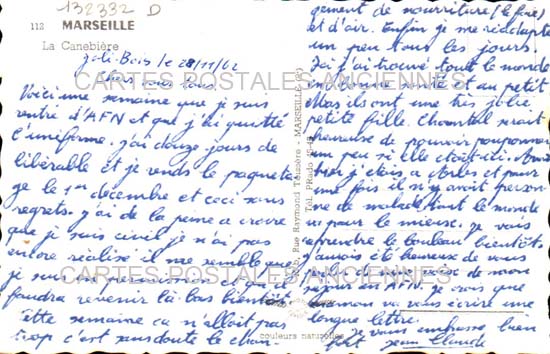 132332 D
112 MARSEILLE
La Canebière
Joli-Bois le 28/11/62
Chers vous tous,
Voici une semaine que je suis
rentré d'AFN et que j'ai quitté
l'uniforme. j'ai douze jours de
libérable et je rends le paquetage
le 1er décembre et ceci sans
regrets. j'ai de la peine a croire
que je suis civil je n'ai pas
encore réalisé il me semble que
je suis en permission et qu'il
faudra revenir là-bas bientôt
Cette semaine ca n'allait pas
trop c'est sans doute le chan-
gement de nourriture (le
et d'air. Enfin je me réadapte
un peu tous les jours.
J'ai trouvé tout le monde
en bonne santé et au petit
Mas ils ont une très jolie
petite fille. Chantal serait
heureuse de pouvoir pouponner
un peu si elle était ici.
hier j'étais a Arles et pour
une fois il n'y avait person-
ne de malade tout le monde
va pour le mieux. je vais
reprendre le boulot bientôt
j'aurais été heureux de vous
de mon
séjour en AFN. je crois que
maman va vous écrire une
longue lettre.
je vous embrasse bien
fort Jean Claude
Rue Raymond Teisseire - MARSEILLE
couleurs naturelles
CARTES POSTALES ANCIENNES
CARTES POSTALES ANCIENNES